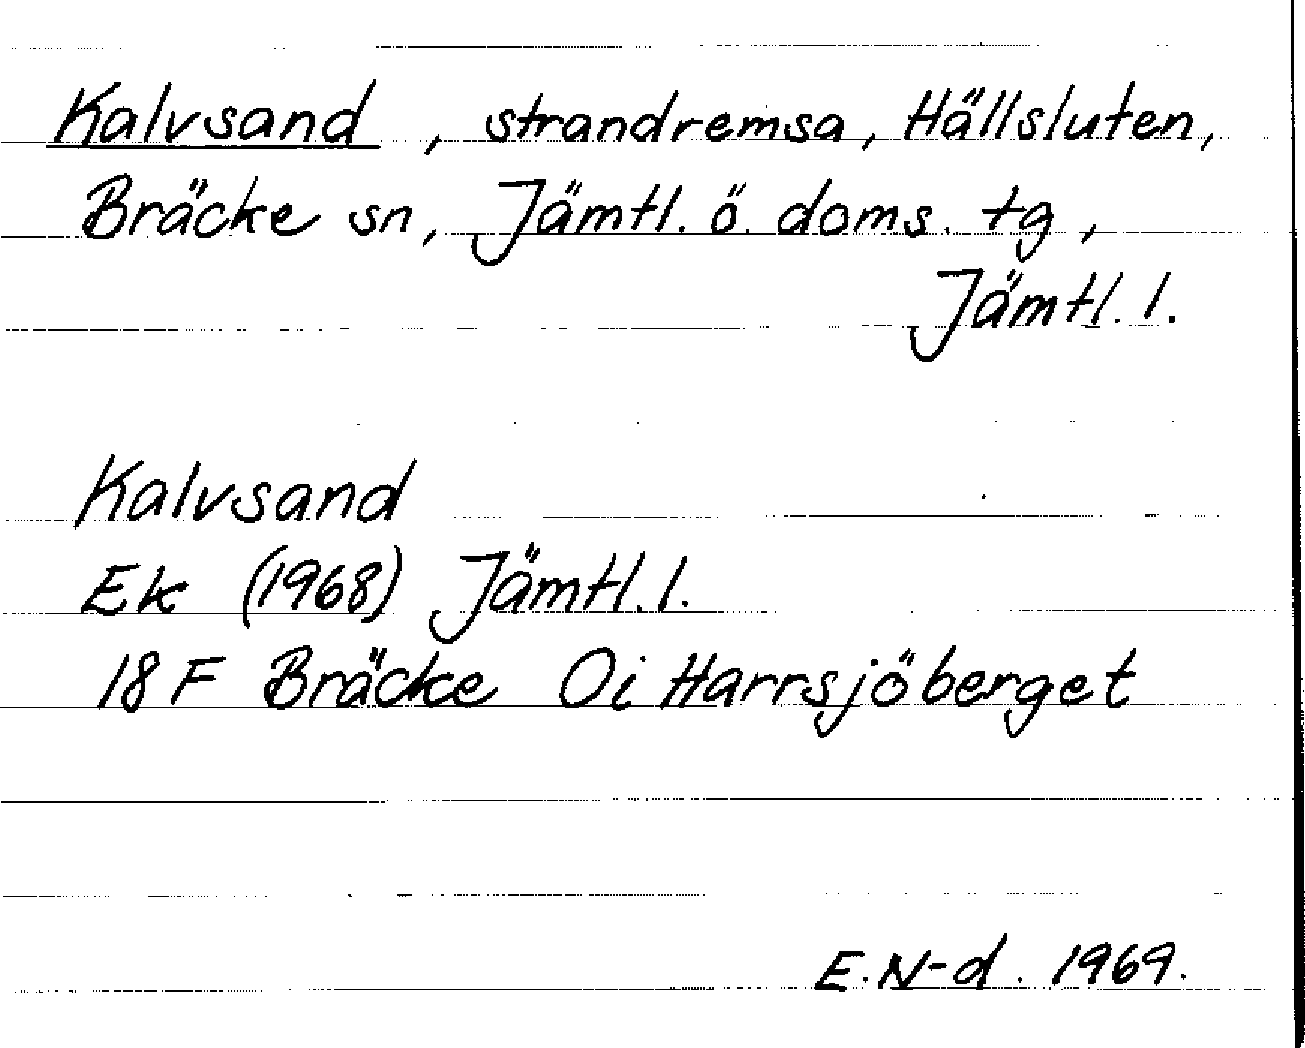 Kalvsand, strandremsa, Hällsluten,
Bräcke sn, Jämtl. ö. doms. tg,
Jämtl. l.
Kalvsand
Ek (1968) Jämtl. l.
18 F Bräcke Oi Harrsjöberget
E. N-d. 1969.